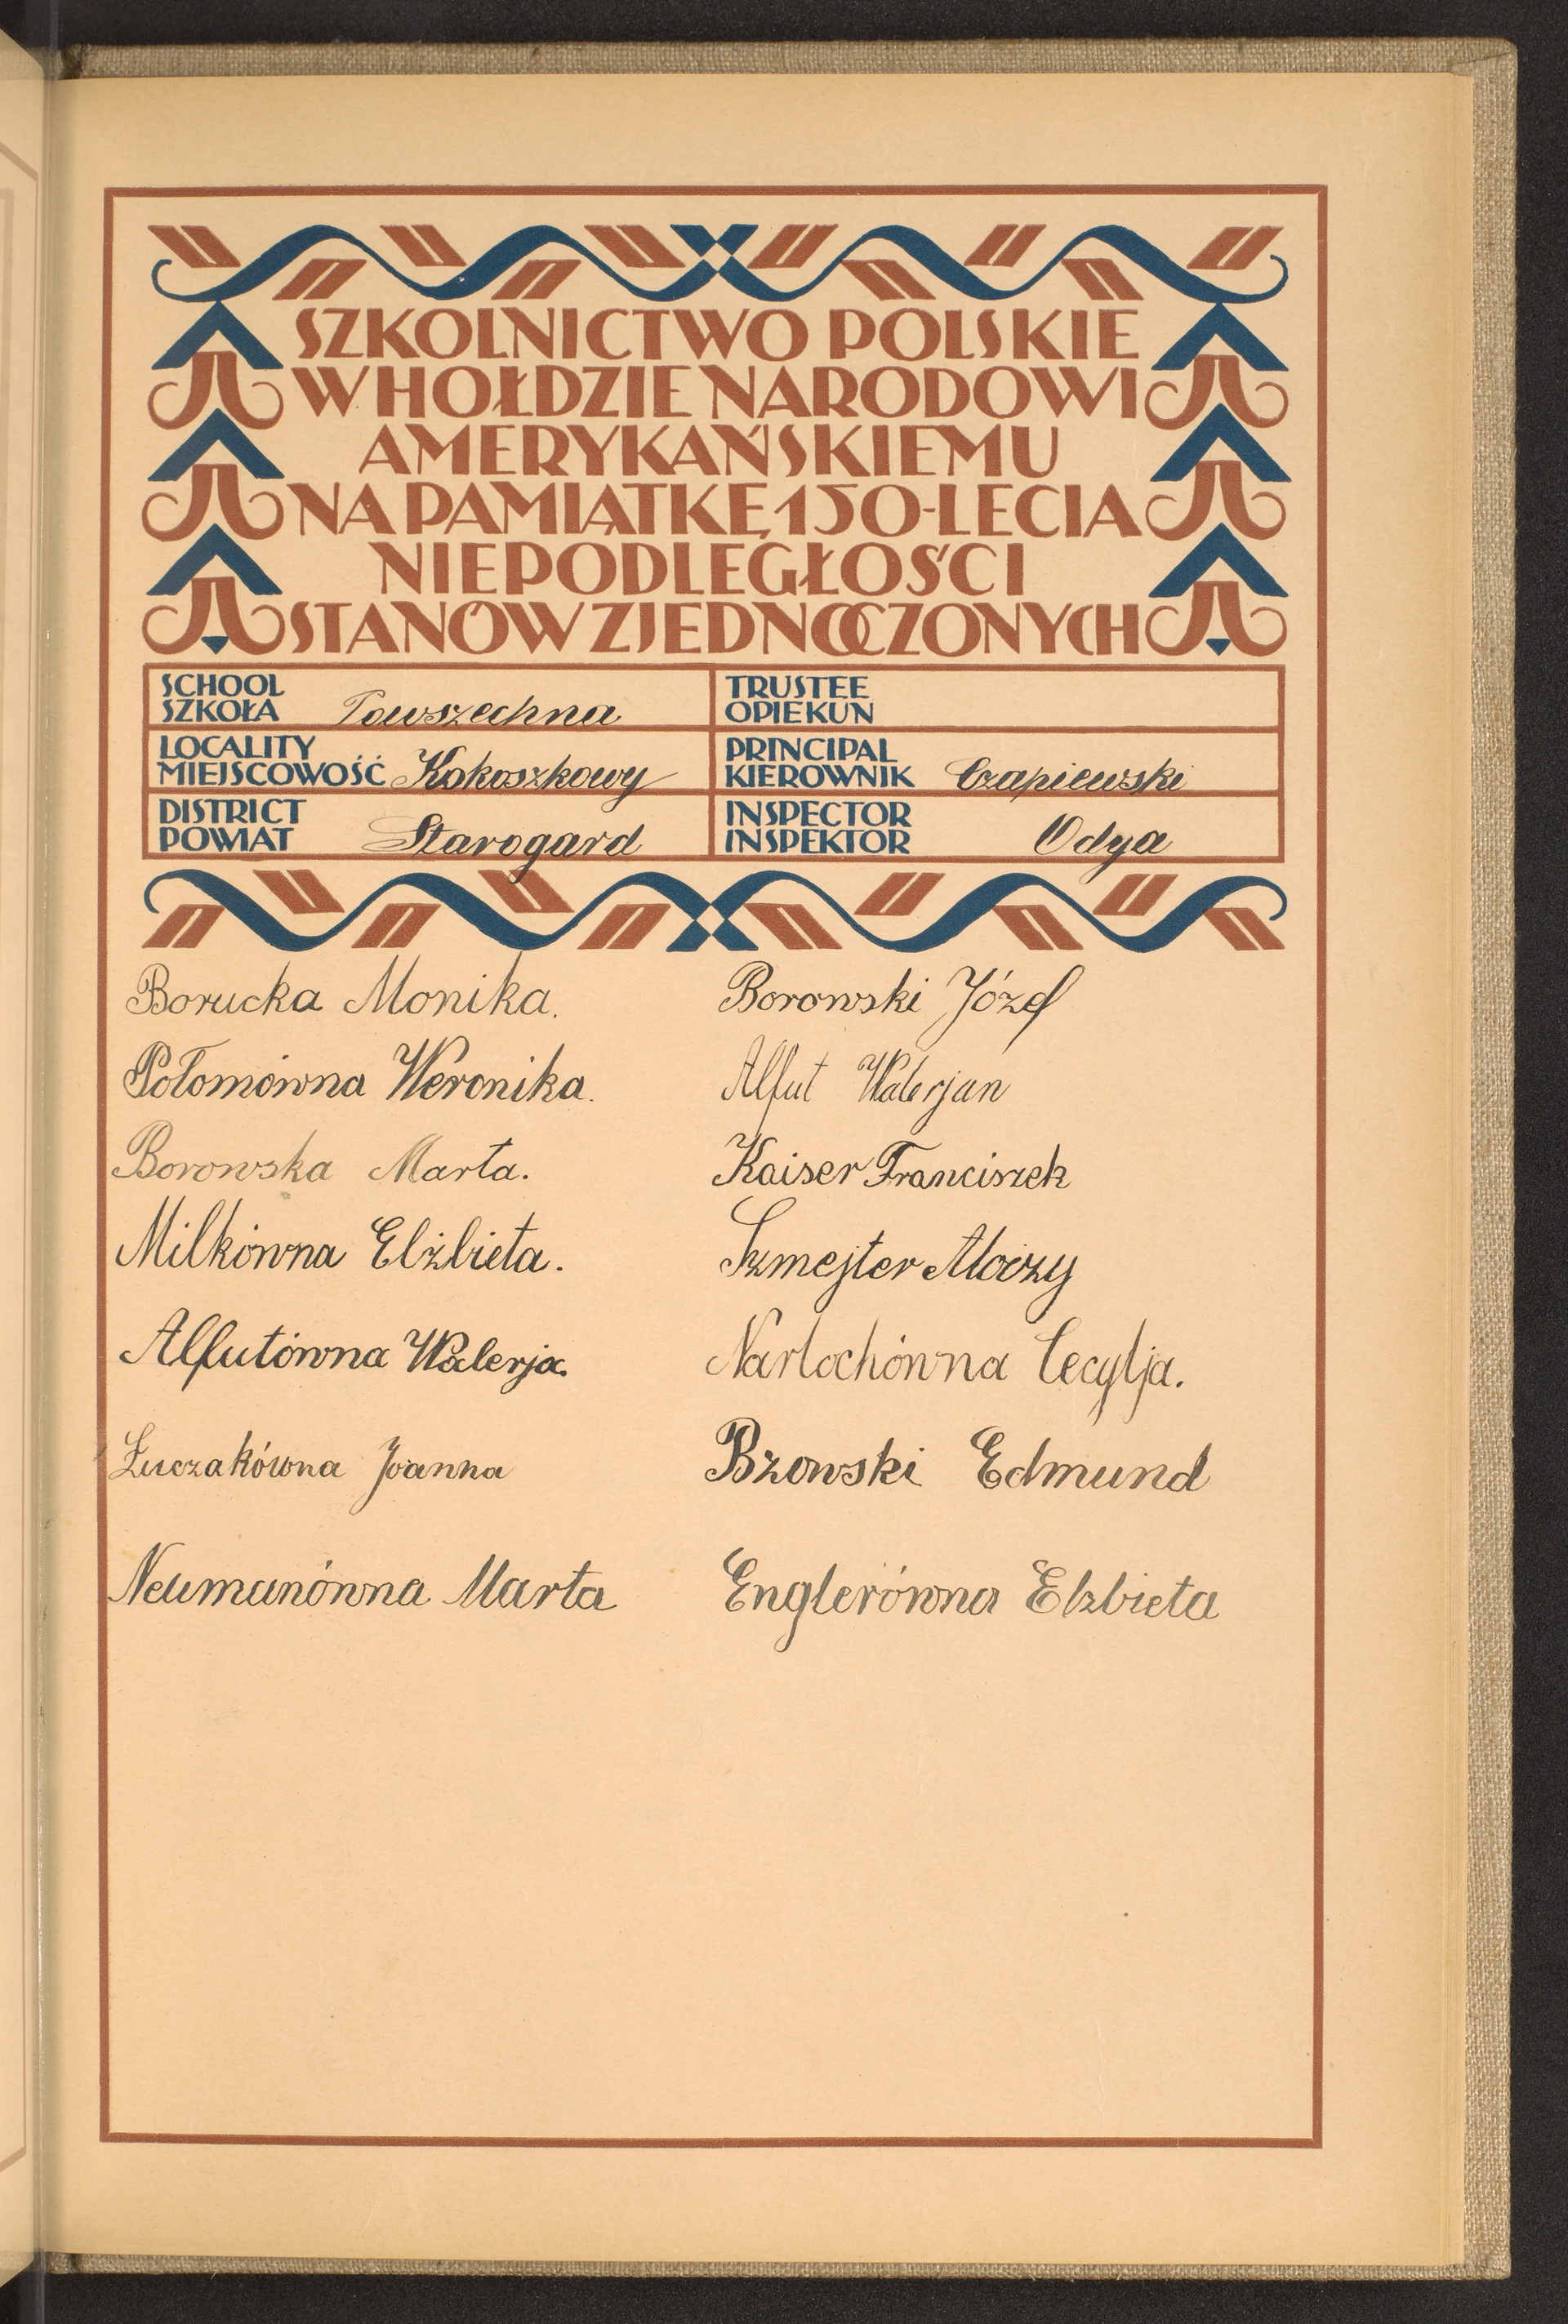 SZKOLNICTWO POLSKIE
W HOŁDZIE NARODOWI
AMERYKAŃSKIEMU
NA PAMIĄTKĘ 150-LECIA
NIEPODLEGŁOŚCI
STANÓW ZJEDNOCZONYCH
SCHOOL
SZKOŁA Powszechna
TRUSTEE
OPIEKUN
LOCALITY
MIEJSCOWOŚĆ Kokoszkowy
PRINCIPAL
KIEROWNIK Czapiewski
DISTRICT
POWIAT Starogard
INSPECTOR
INSPEKTOR Odya
Borucka Monika.
Połomówna Weronika.
Borowska Marta.
Milkówna Elżbieta.
Alfutówna Walerja.
Łuczakówna Joanna
Neumanówna Marta
Borowski Józef
Alfut Walerjan
Kaiser Franciszek
Szmejter Aloizy
Narlochówna Cecylja.
Bzowski Edmund
Englerówna Elzbieta